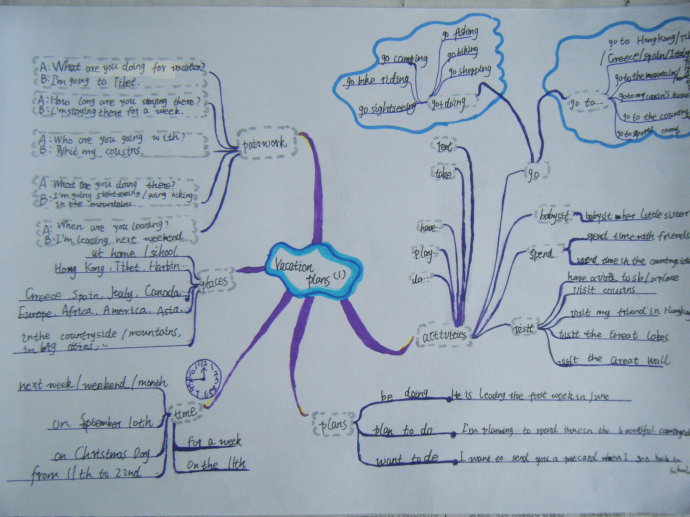 A: What are you doing for vacation?
B: I'm going to Tibet.
A: How long are you staying there?
B: I'm staying there for a week.
A: Who are you going with?
B: With my cousins.
A: What are you doing there?
B: I'm going sightseeing / going hiking
in the mountains.
A: When are you leaving?
B: I'm leaving next weekend.
pairwork
Vacation
plans (1)
places
at home / school
Hong Kong, Tibet, Harbin...
Greece, Spain, Italy, Canada
Europe, Africa, America, Asia
in the countryside / mountains,
in big cities, ...
time
next week / weekend / month
on September 10th
on Christmas Day
from 11th to 22nd
for a week
on the 11th
plans
be doing
He is leaving the first week in June
plan to do
I'm planning to spend in the beautiful
want to do
I want to send you a postcard when I
activities
take
have
play
do
go
go doing
go fishing
go camping
go hiking
go bike riding
go shopping
go sightseeing
go to...
go to Hongkong/
Greece/Spain/
go to the mountains
go to my cousin's house
go to the country
go to sports camp
babysit
babysit her little sister
spend
spend time with friends
spend time in the countryside
visit
have a visit to sb/a place
visit cousins
visit my friend in Hong
visit the Great Lakes
visit the Great Wall